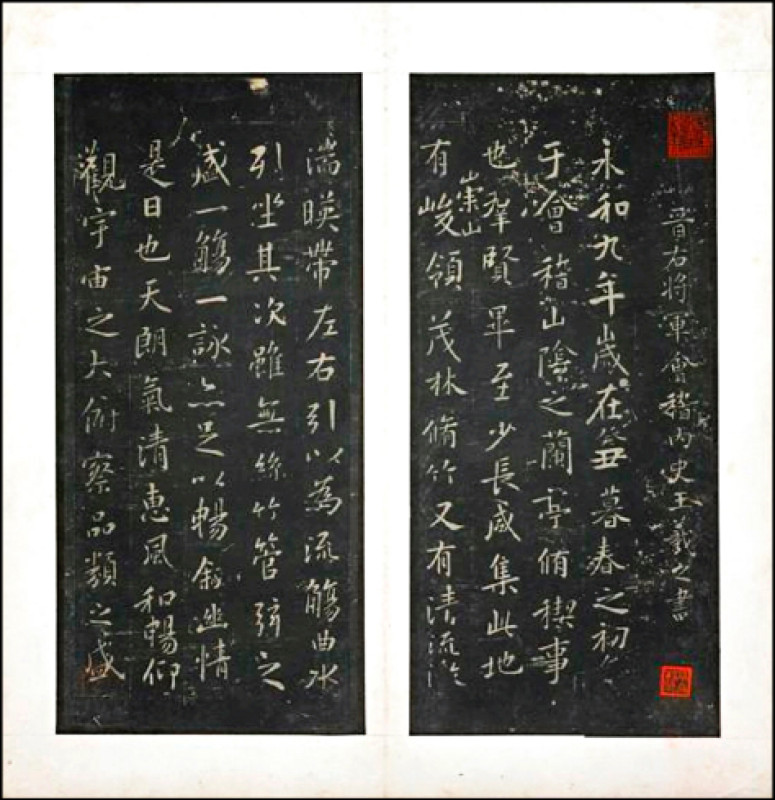 晋右将軍會稽内史王羲之書
永和九年歲在癸丑暮春之初會
于會稽山陰之蘭亭脩禊事
也羣賢畢至少長咸集此地
有崇山峻領茂林脩竹又有清流激
湍暎帶左右引以為流觴曲水
列坐其次雖無絲竹管弦之
盛一觴一詠亦足以暢叙幽情
是日也天朗氣清惠風和暢仰
觀宇宙之大俯察品類之盛